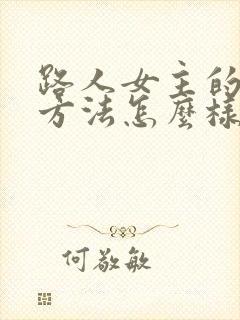 路人女主的
方法怎麼樣
何敬敏